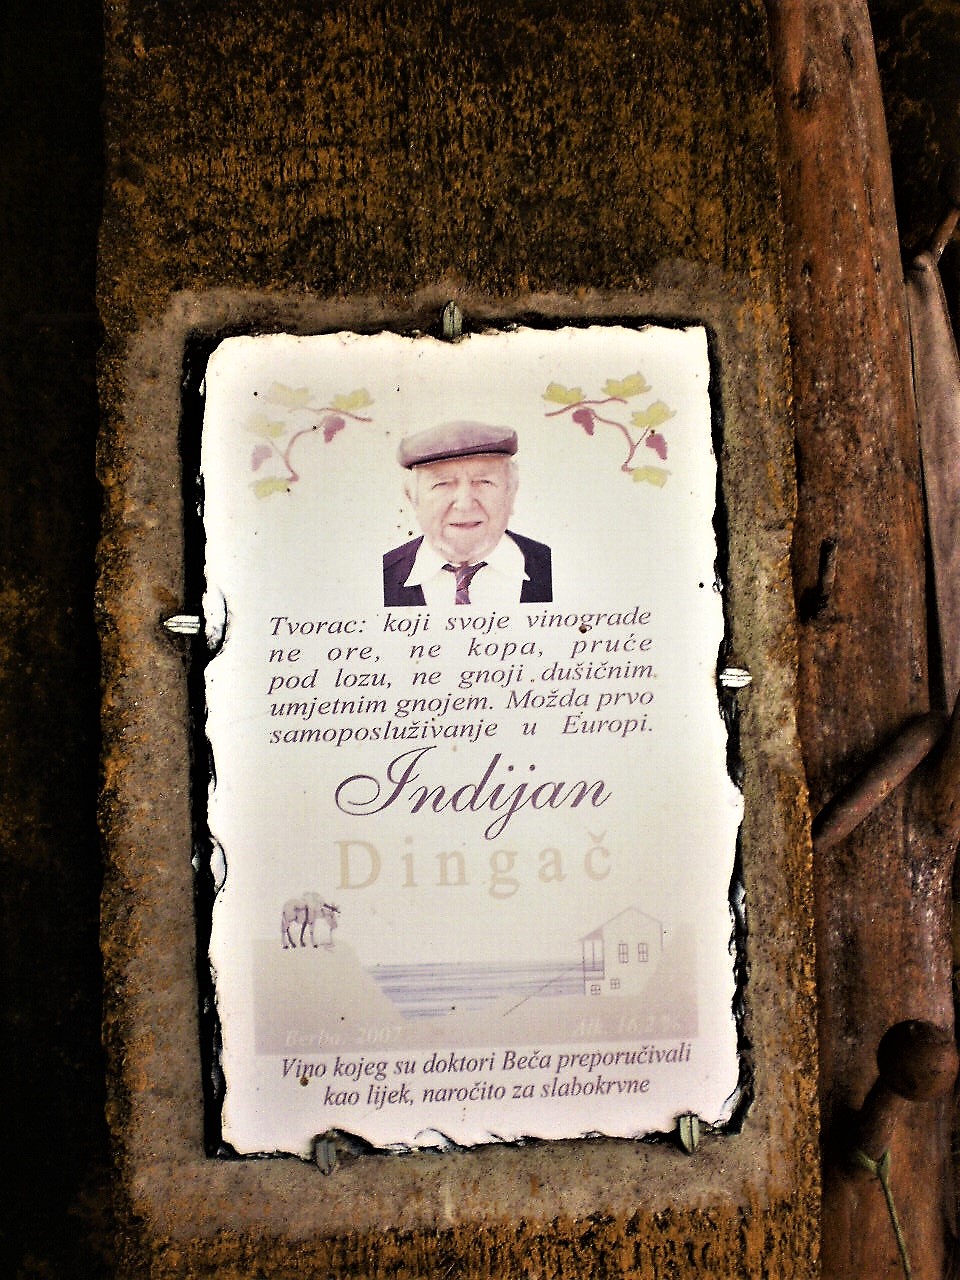 Tvorac: koji svoje vinograde
ne ore, ne kopa, pruće
pod lozu, ne gnoji dušičnim
umjetnim gnojem. Možda prvo
samoposluživanje u Europi.
Indijan
Dingač
Berba: 2007 Alk. 16,2 %
Vino kojeg su doktori Beča preporučivali
kao lijek, naročito za slabokrvne